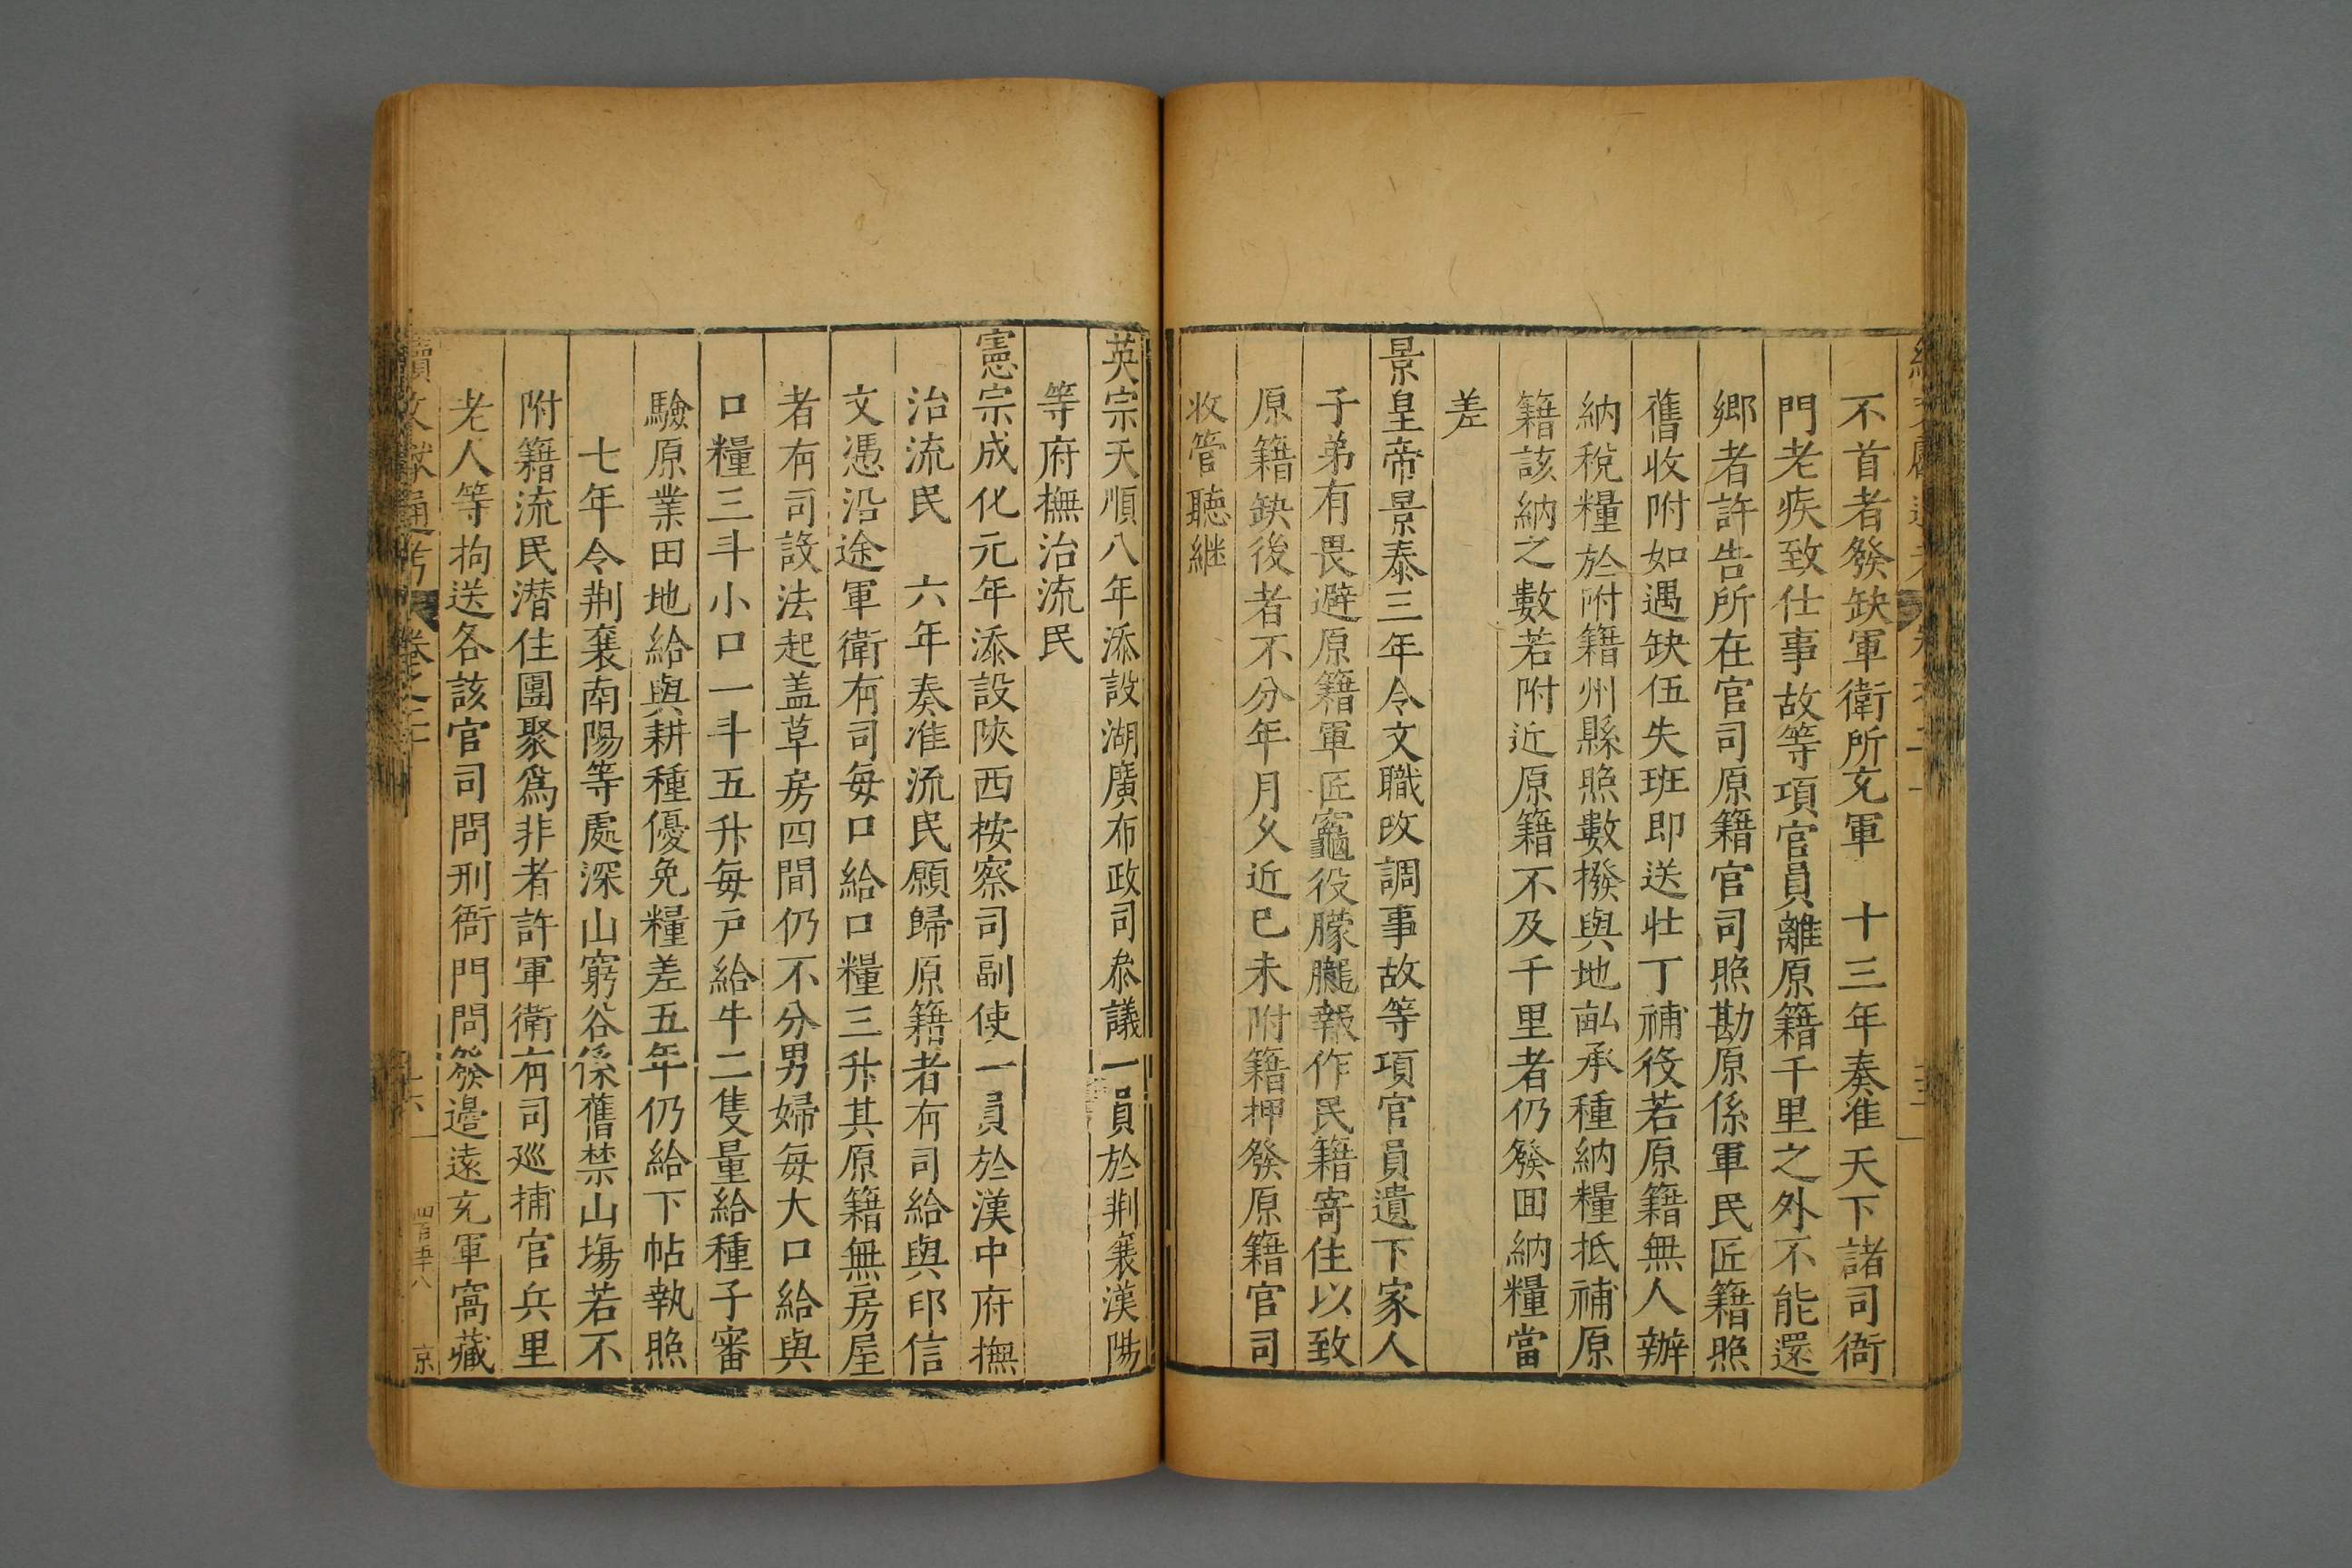 不首者發缺軍衛所充軍　十三年奏准天下諸司衙
門老疾致仕事故等項官員離原籍千里之外不能還
鄉者許告所在官司原籍官司照勘原係軍民匠籍照
舊收附如遇缺伍失班即送壮丁補役若原籍無人辦
納稅糧於附籍州縣照數撥與地畝承種納糧抵補原
籍該納之數若附近原籍不及千里者仍發囬納糧當
差
景皇帝景泰三年令文職改調事故等項官員遺下家人
子弟有畏避原籍軍匠竈役朦朧報作民籍寄住以致
原籍缺後者不分年月久近已未附籍押發原籍官司
收管聽継
英宗天順八年添設湖廣布政司叅議一員於荆襄漢陽
等府撫治流民
憲宗成化元年添設陜西按察司副使一員於漢中府撫
治流民　六年奏准流民願歸原籍者有司給與印信
文憑沿途軍衛有司每口給口糧三升其原籍無房屋
者有司設法起盖草房四間仍不分男婦每大口給與
口糧三斗小口一斗五升每戶給牛二隻量給種子審
驗原業田地給與耕種優免糧差五年仍給下帖執照
七年令荆襄南陽等處深山窮谷係舊禁山場若不
附籍流民潜住團聚爲非者許軍衛有司廵捕官兵里
老人等拘送各該官司問刑衙門問發邊遠充軍窩藏
續文獻通考　卷之二十　十六　四百五十八　京